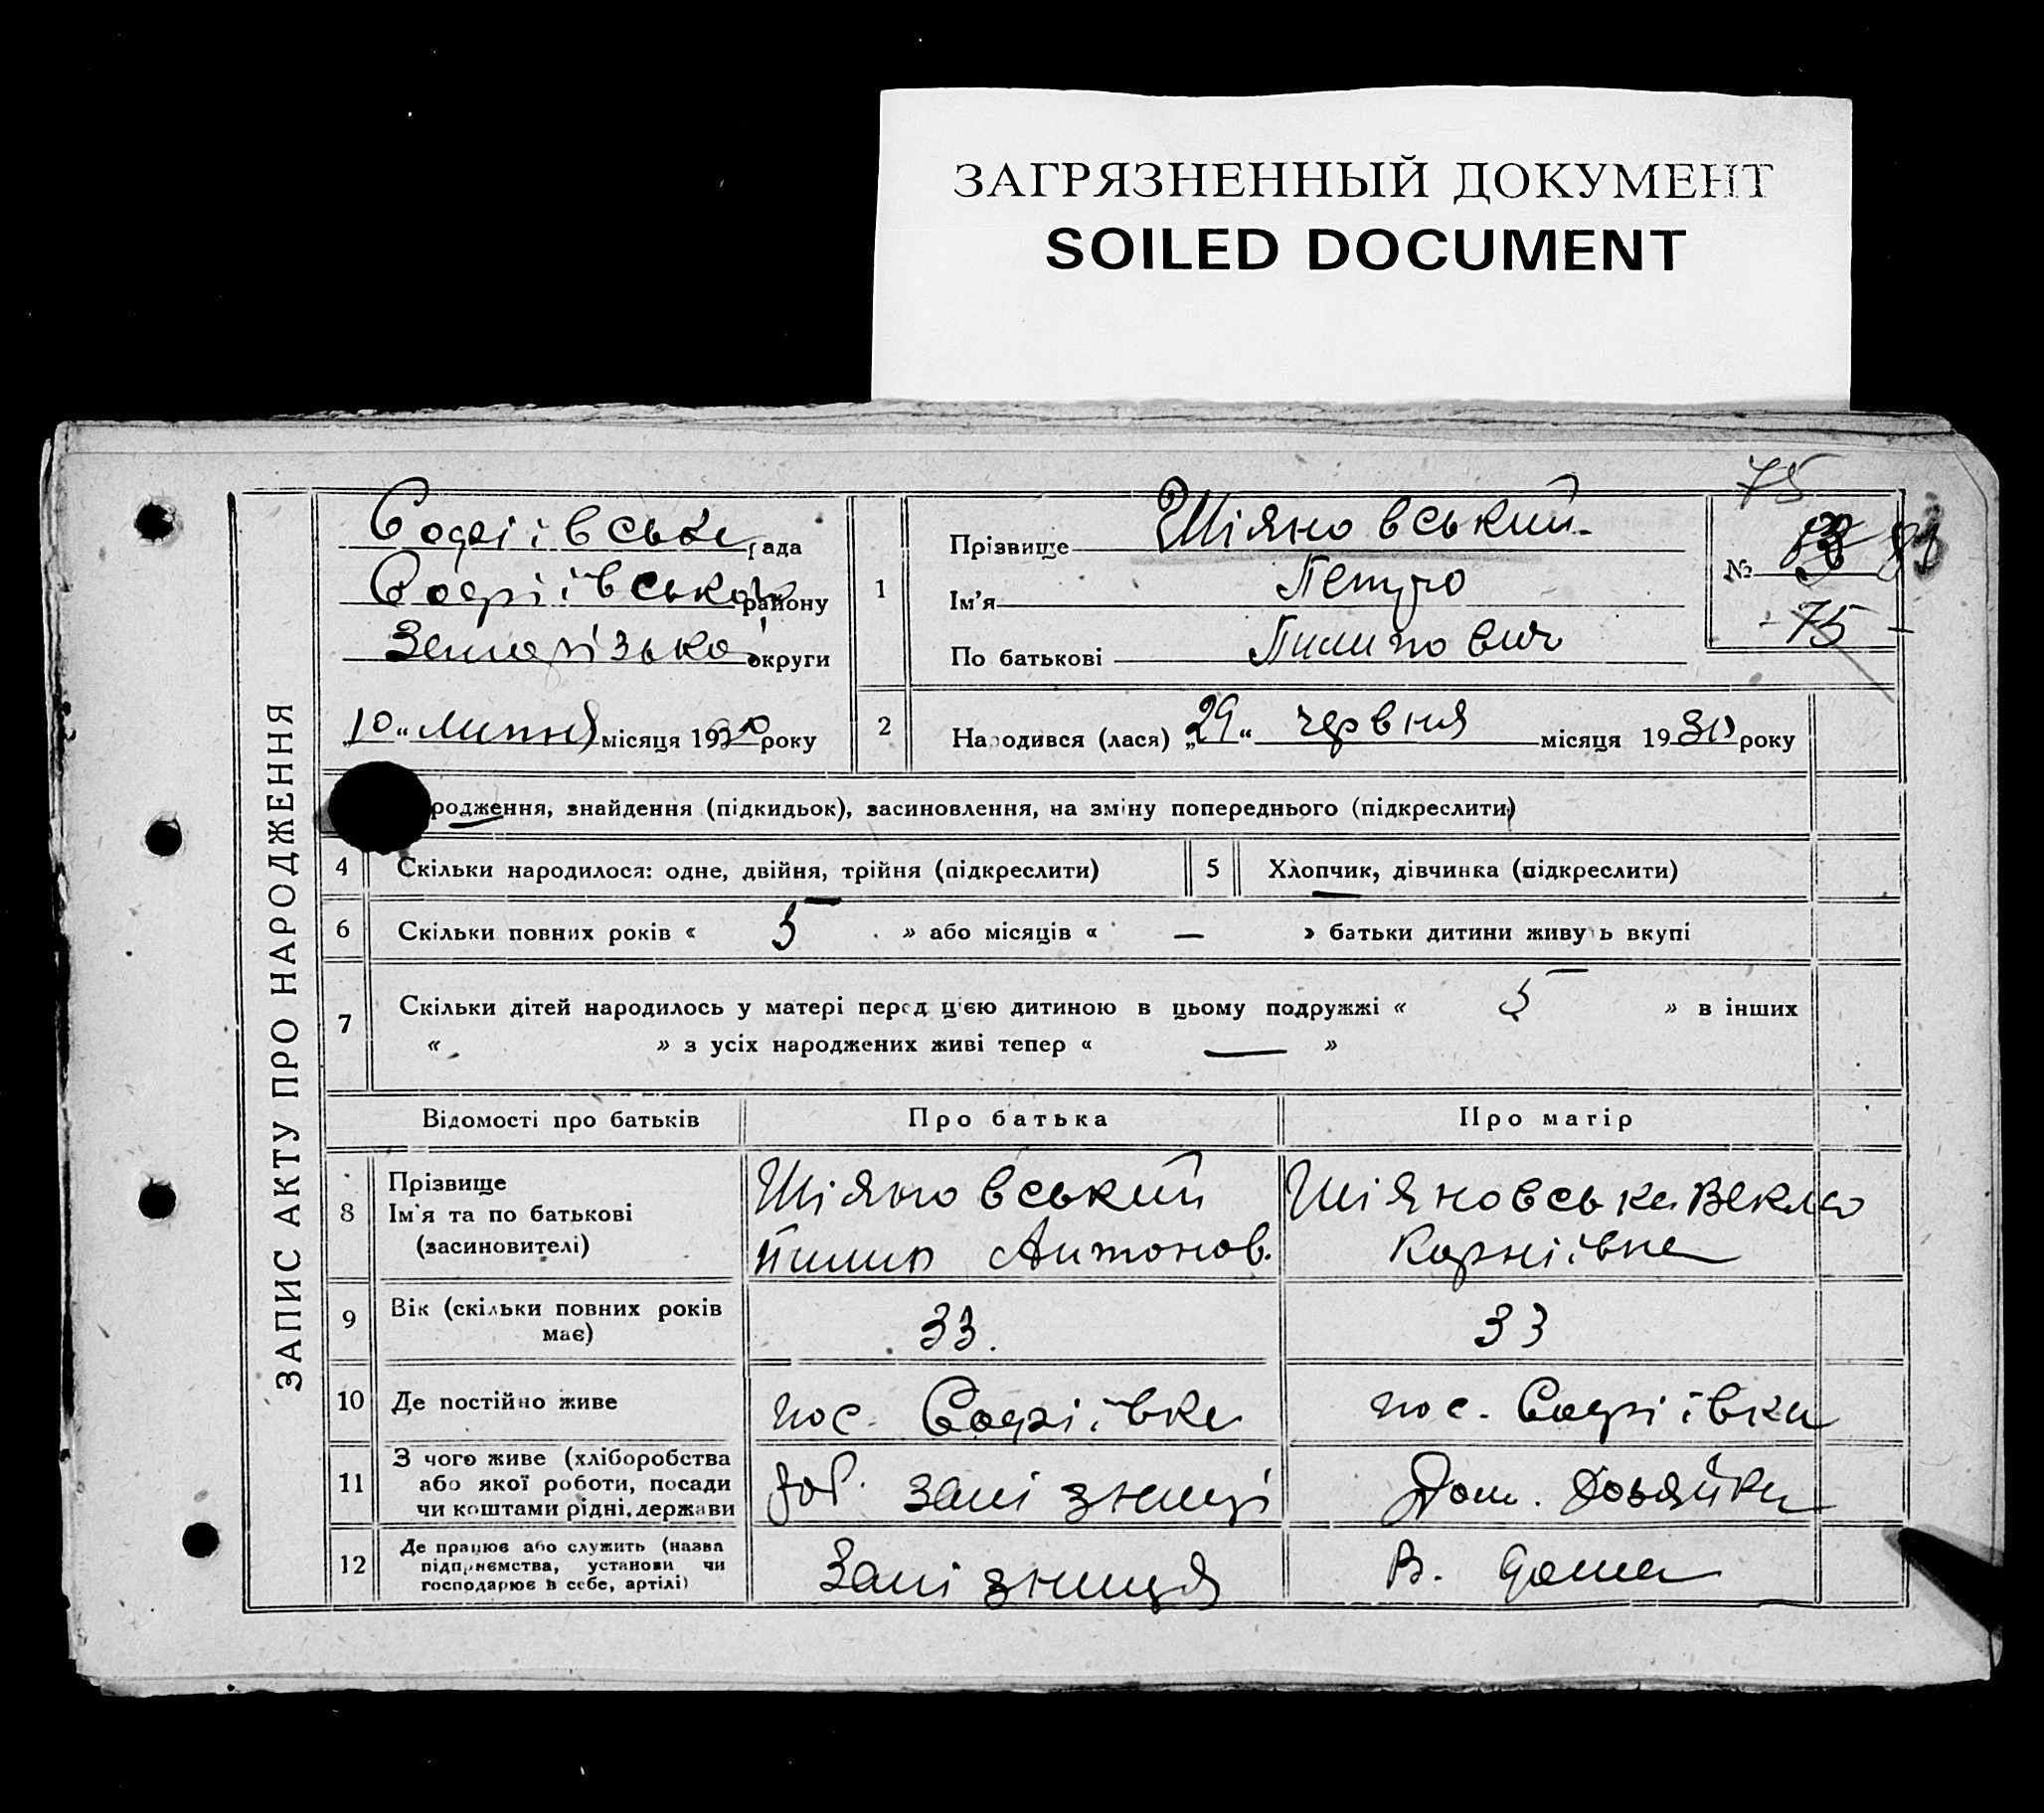 ЗАГРЯЗНЕННЫЙ ДОКУМЕНТ
SOILED DOCUMENT
ЗАПИС АКТУ ПРО НАРОДЖЕННЯ
75
Софіївська рада
Софіївського району
Запорізької округи
„10“ липня місяця 1930 року
1
Прізвище Шіяновський
Ім’я Петро
По батькові Пилипович
№
75
2
Народився (лася) „29“ червня місяця 1930 року
родження, знайдення (підкидьок), засиновлення, на зміну попереднього (підкреслити)
4 Скільки народилося: одне, двійня, трійня (підкреслити)
5 Хлопчик, дівчинка (підкреслити)
6 Скільки повних років « 5 » або місяців « — » батьки дитини живуть вкупі
7 Скільки дітей народилось у матері перед цією дитиною в цьому подружжі « 5 » в інших
« » з усіх народжених живі тепер « — »
Відомості про батьків Про батька Про матір
8 Прізвище
Ім’я та по батькові
(засиновителі)
Шіяновський
Пилип Антонов.
Шіяновська Векла
Корніївна
9 Вік (скільки повних років
має)
33.
33
10 Де постійно живе
пос. Софіївка
пос. Софіївка
11 З чого живе (хліборобства
або якої роботи, посади
чи коштами рідні, держави
роб. залізниці
Дом. хозяйка
12 Де працює або служить (назва
підприємства, установи чи
господарює в себе, артілі)
Залізниця
В. дома